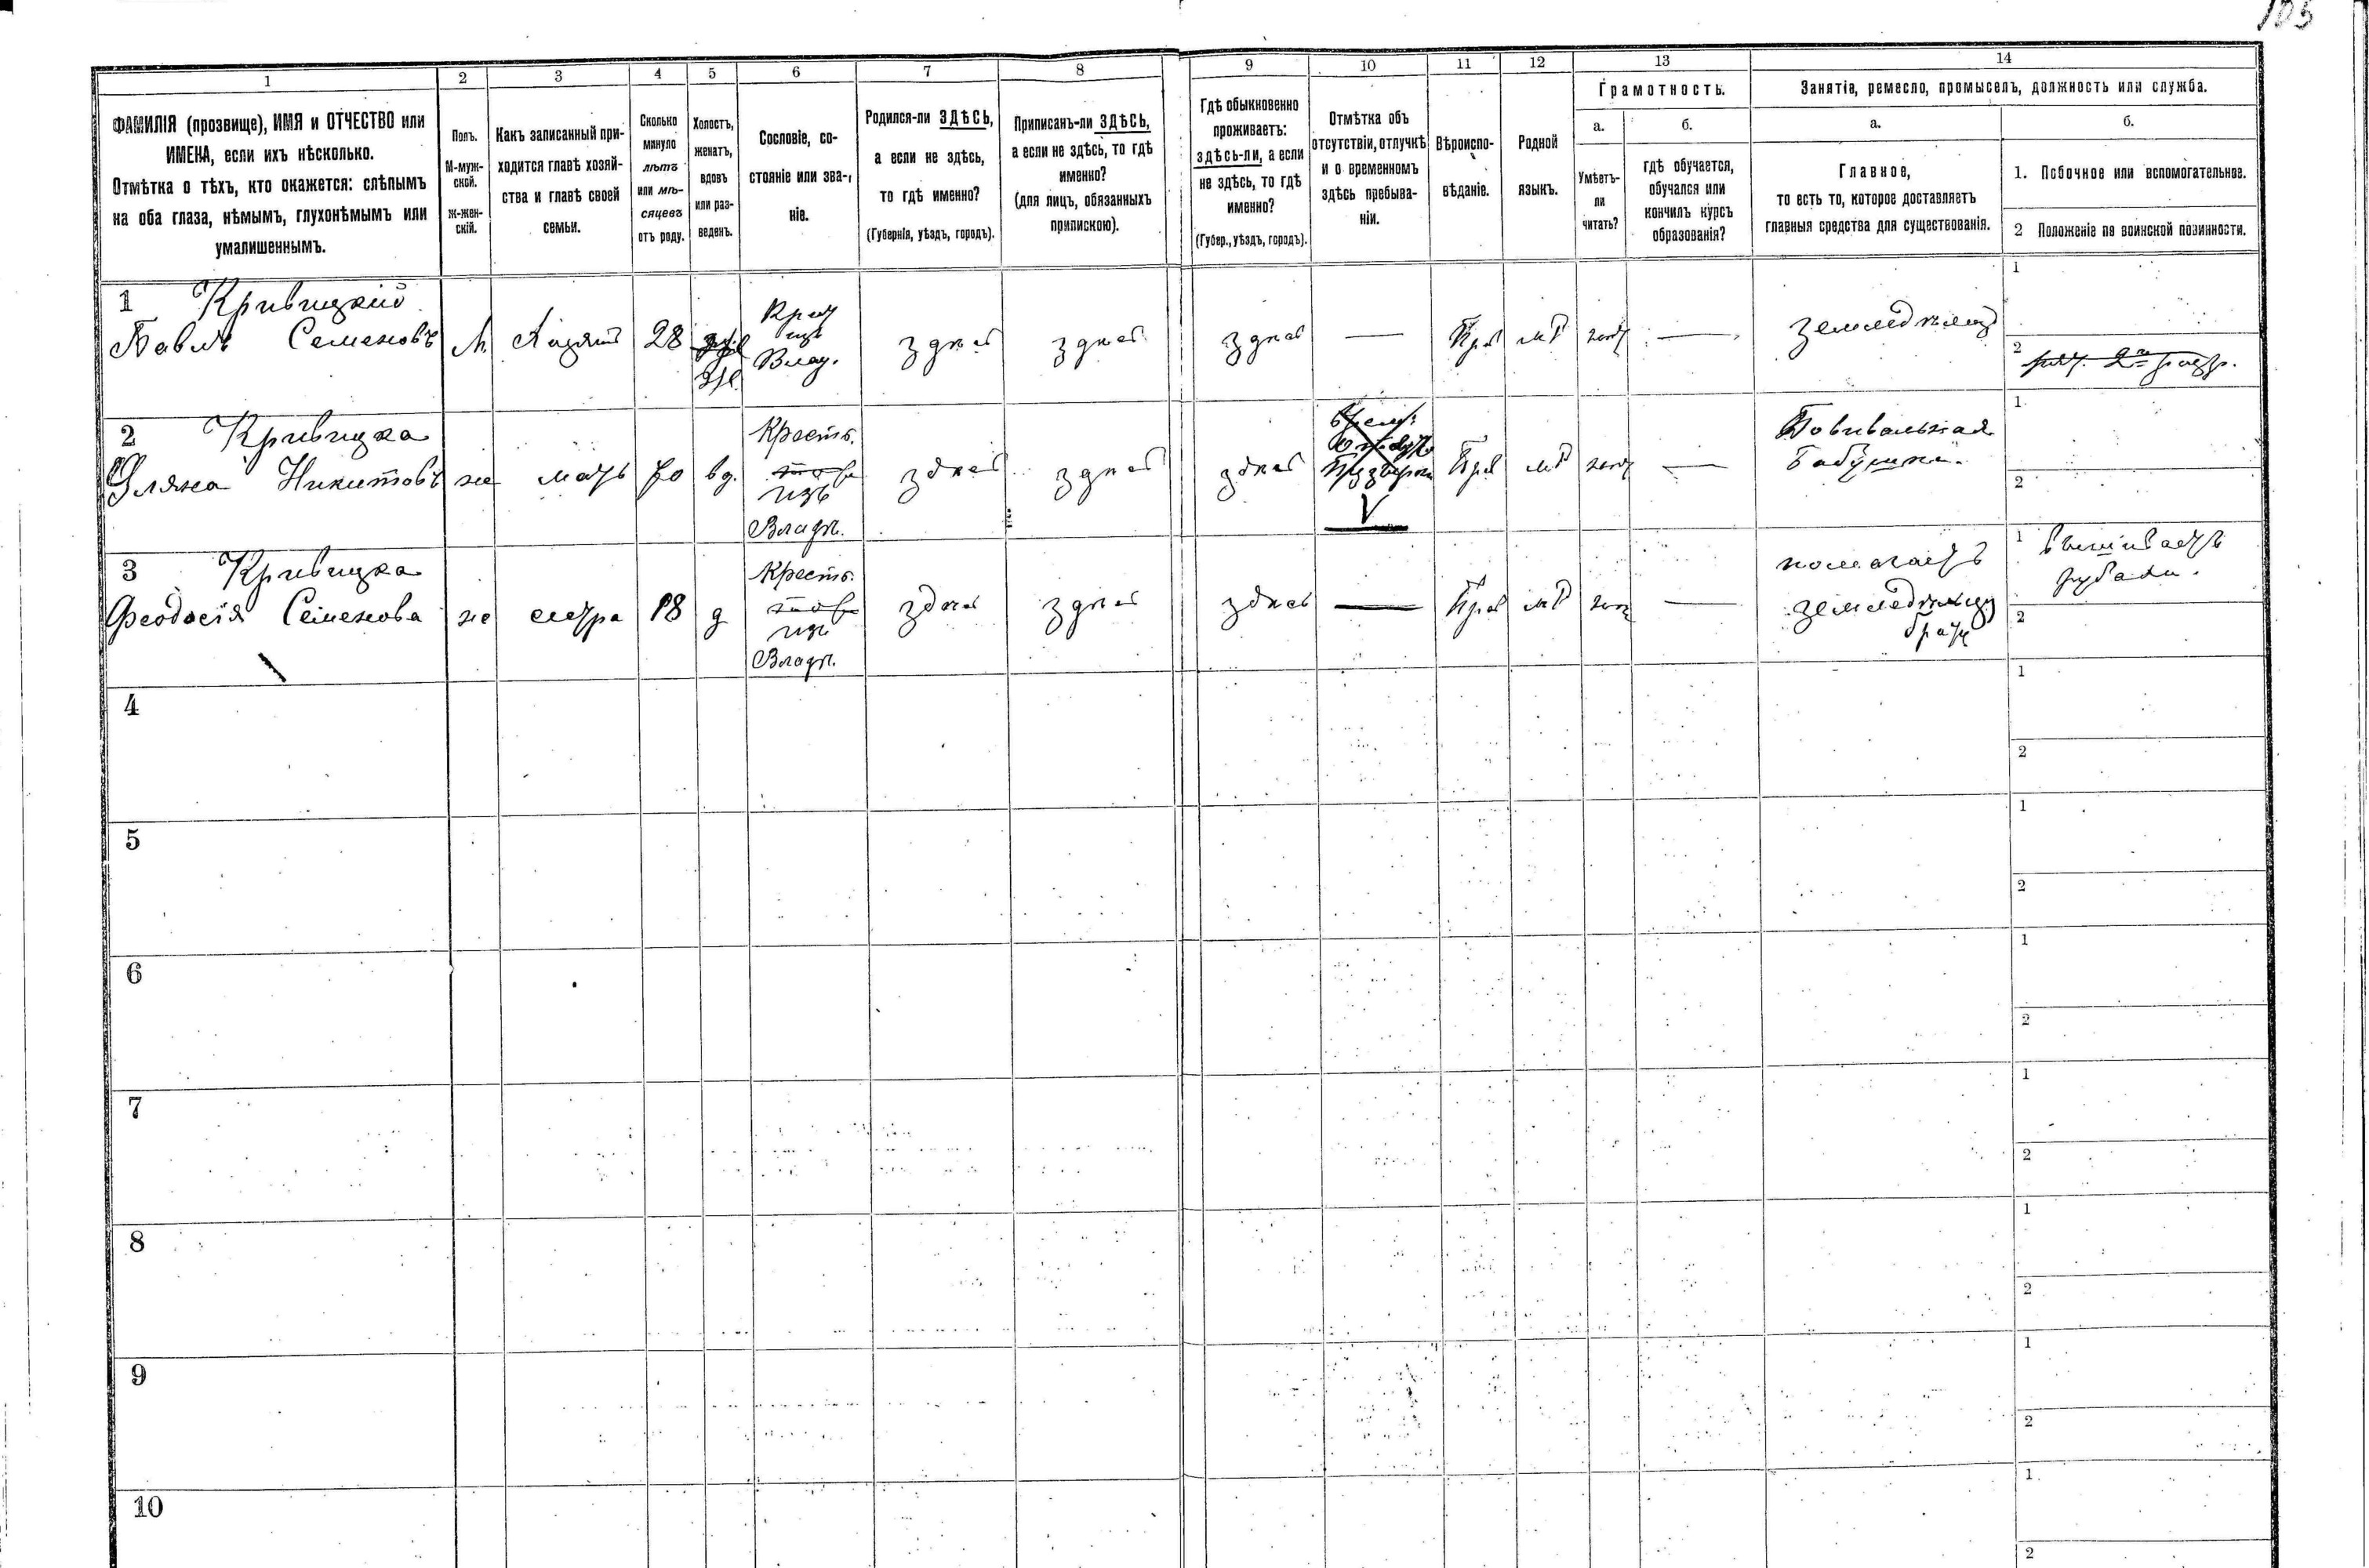 105
1
2
3
4
5
6
7
8
9
10
11
12
13
14
ФАМИЛІЯ (прозвище), ИМЯ и ОТЧЕСТВО или
ИМЕНА, если ихъ нѣсколько.
Отмѣтка о тѣхъ, кто окажется: слѣпымъ
на оба глаза, нѣмымъ, глухонѣмымъ или
умалишеннымъ.
Полъ.
М-муж-
ской.
Ж-жен-
скій.
Какъ записанный при-
ходится главѣ хозяй-
ства и главѣ своей
семьи.
Сколько
минуло
лѣтъ
или мѣ-
сяцевъ
отъ роду.
Холостъ,
женатъ,
вдовъ
или раз-
веденъ.
Сословіе, со-
стояніе или зва-
ніе.
Родился-ли ЗДѢСЬ,
а если не здѣсь,
то гдѣ именно?
(Губернія, уѣздъ, городъ).
Приписанъ-ли ЗДѢСЬ,
а если не здѣсь, то гдѣ
именно?
(для лицъ, обязанныхъ
припискою).
Гдѣ обыкновенно
проживаетъ:
здѣсь-ли, а если
не здѣсь, то гдѣ
именно?
(Губер., уѣздъ, городъ).
Отмѣтка объ
отсутствіи, отлучкѣ
и о временномъ
здѣсь пребыва-
ніи.
Вѣроиспо-
вѣданіе.
Родной
языкъ.
Грамотность.
а.
Умѣетъ-
ли
читать?
б.
гдѣ обучается,
обучался или
кончилъ курсъ
образованія?
Занятіе, ремесло, промыселъ, должность или служба.
а.
Главное,
то есть то, которое доставляетъ
главныя средства для существованія.
б.
1. Побочное или вспомогательное.
2 Положеніе по воинской повинности.
1 Кривицкій
Павелъ Семеновъ
М.
Хозяинъ
28
Крест
изъ
Влад.
здѣсь
здѣсь
здѣсь
—
Прав
мР
нетъ
—
земледѣлецъ
1
2
2го разр.
2 Кривицка
Уляна Никитовъ
ж
мать
70
вд.
Кресть.
изъ
Влад.
здѣсь
здѣсь
здѣсь
V
Прав
мР
нетъ
—
Повивальная
бабушка.
1
2
3 Кривицка
Феодосія Семенова
ж
сестра
18
д
Кресть.
изъ
Влад.
здѣсь
здѣсь
здѣсь
—
Прав
мР
нетъ
—
помогаетъ
земледѣльцу
брату
1 вышиваетъ
рубахи.
2
4
1
2
5
1
2
6
1
2
7
1
2
8
1
2
9
1
2
10
1
2